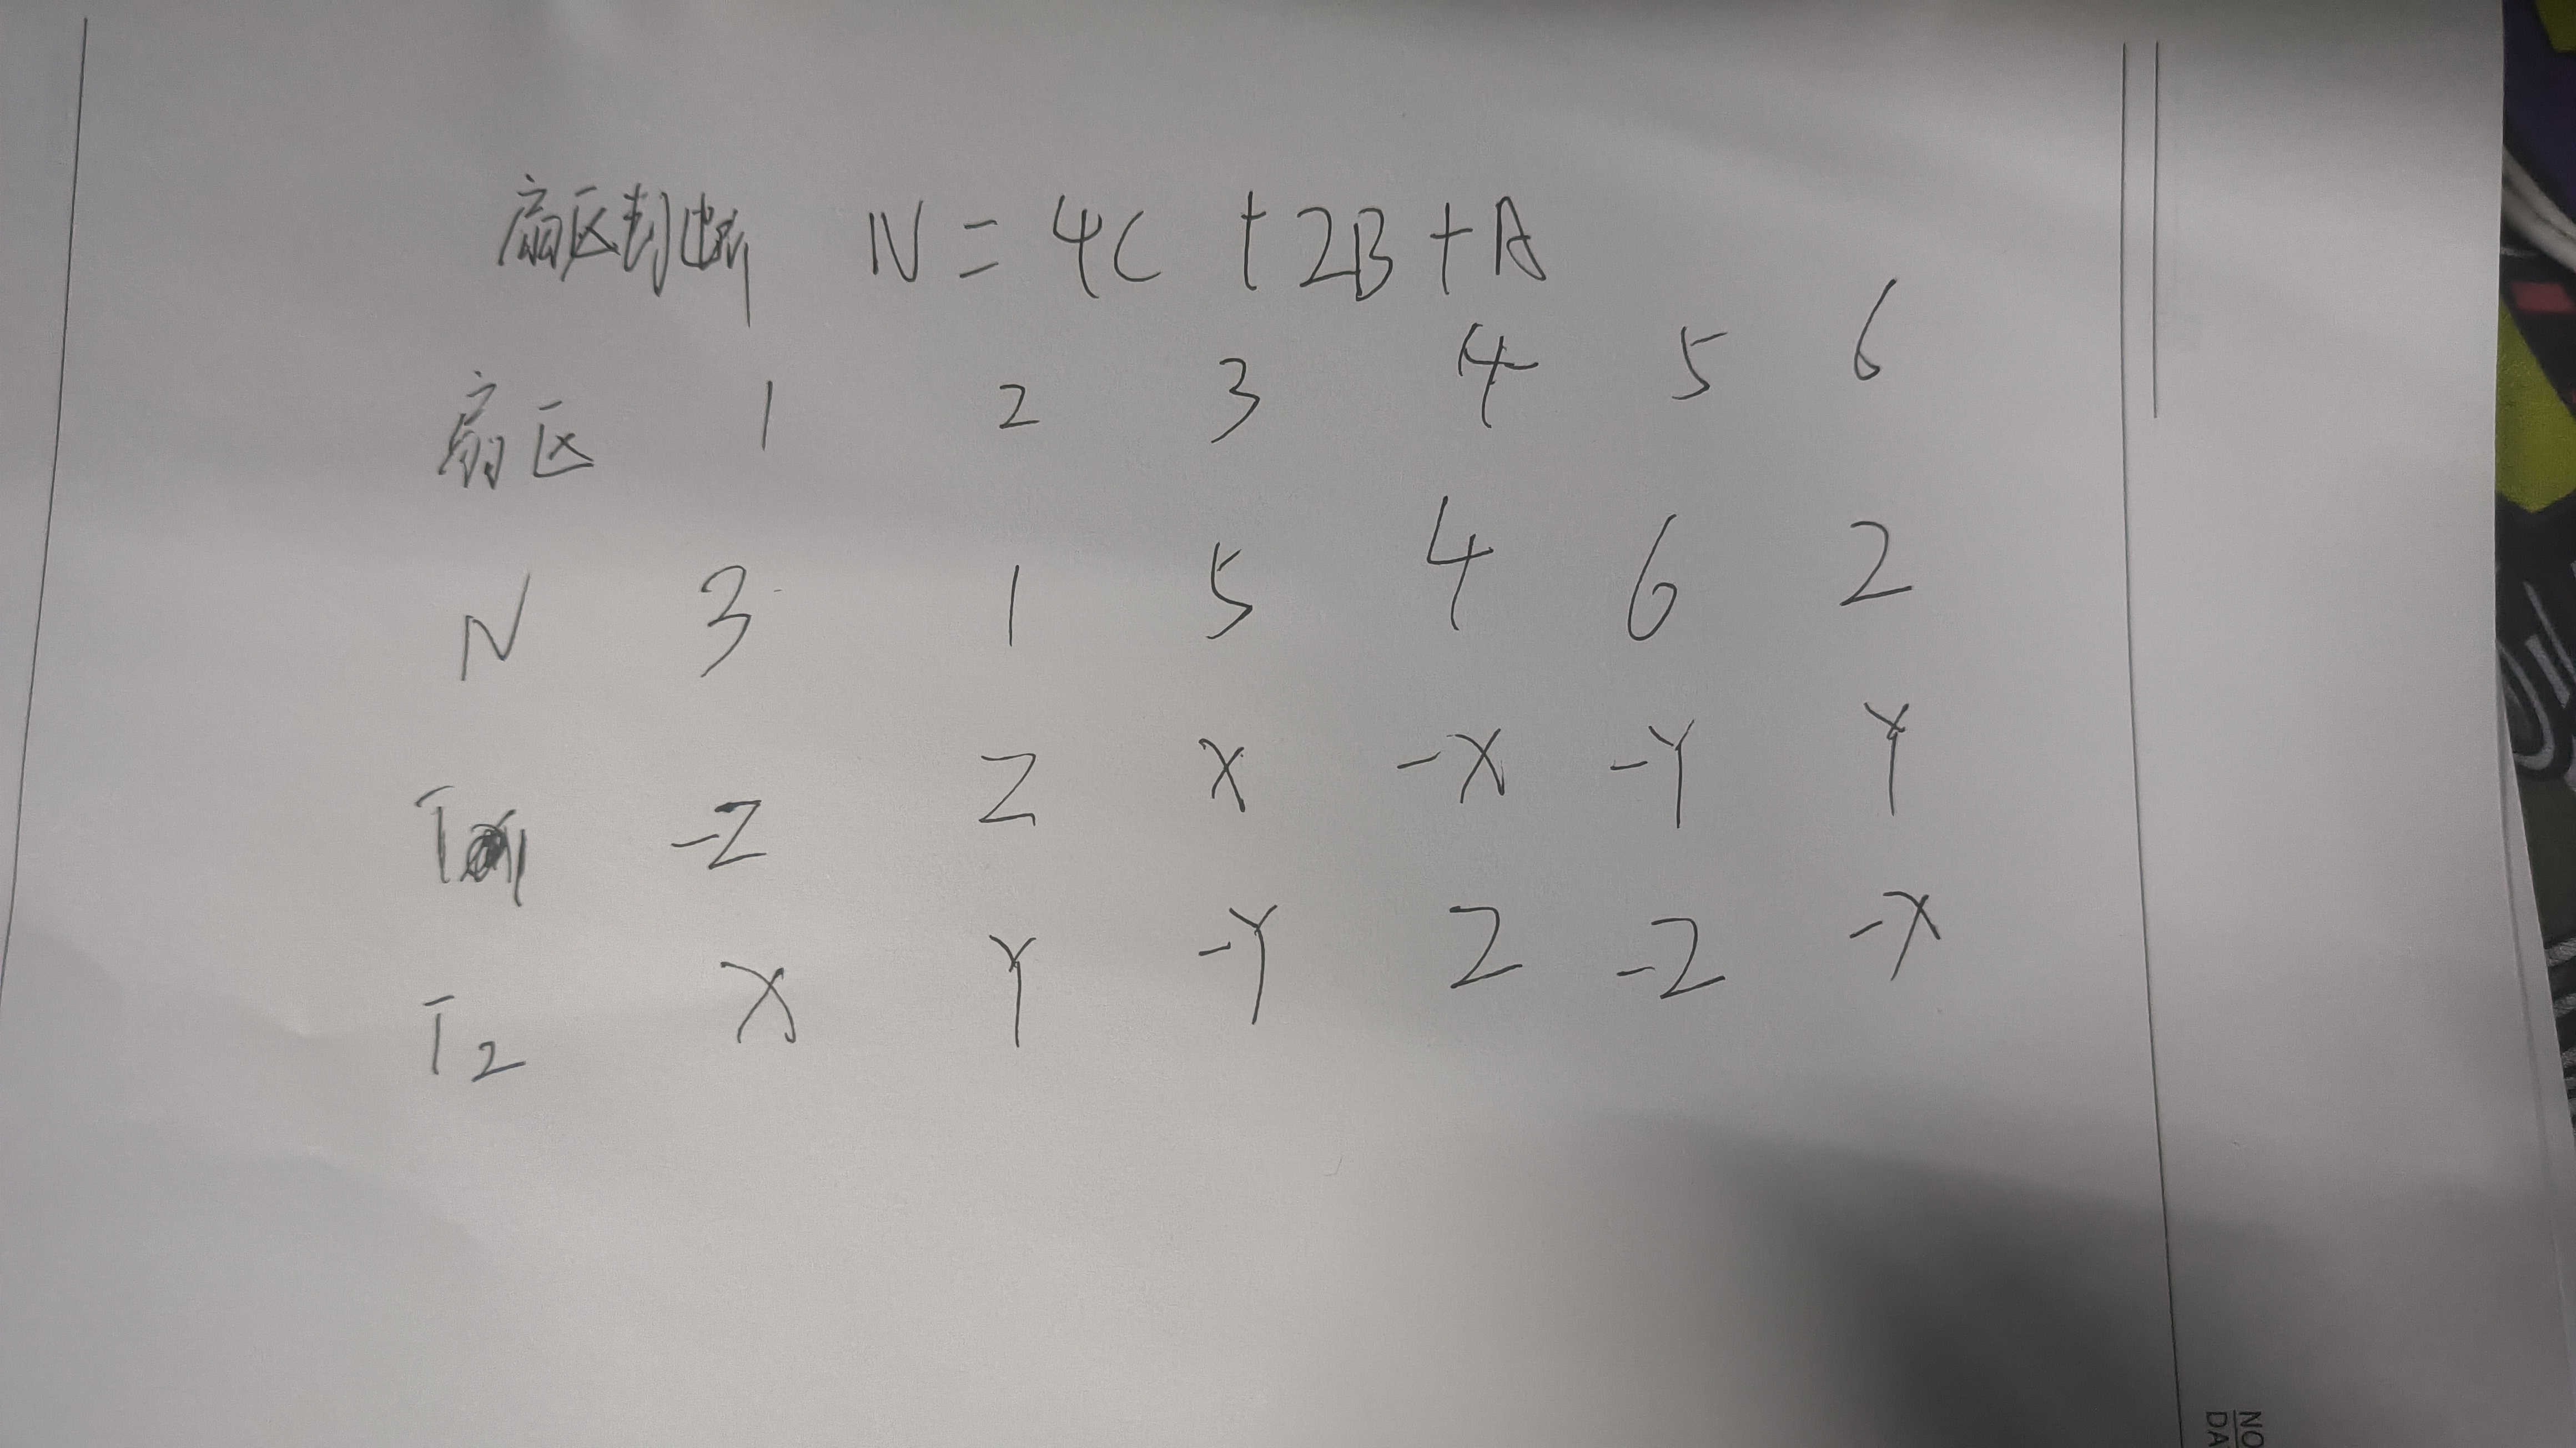 扇区判断 N = 4C + 2B + A
扇区 1 2 3 4 5 6
N 3 1 5 4 6 2
T1 -Z Z X -X -Y Y
T2 X Y -Y Z -Z -X
NO
DA